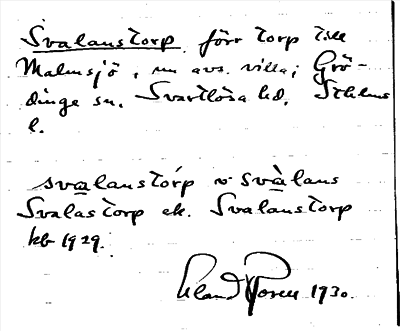 Svalanstorp förr torp till
Malmsjö, nu avs. villa; Grö-
dinge sn. Svartlösa hd. Sthlms
l.
svalanstórp v. svàlans
Svalastorp ek. Svalanstorp
kb 1929.
Erland Rosell 1930.